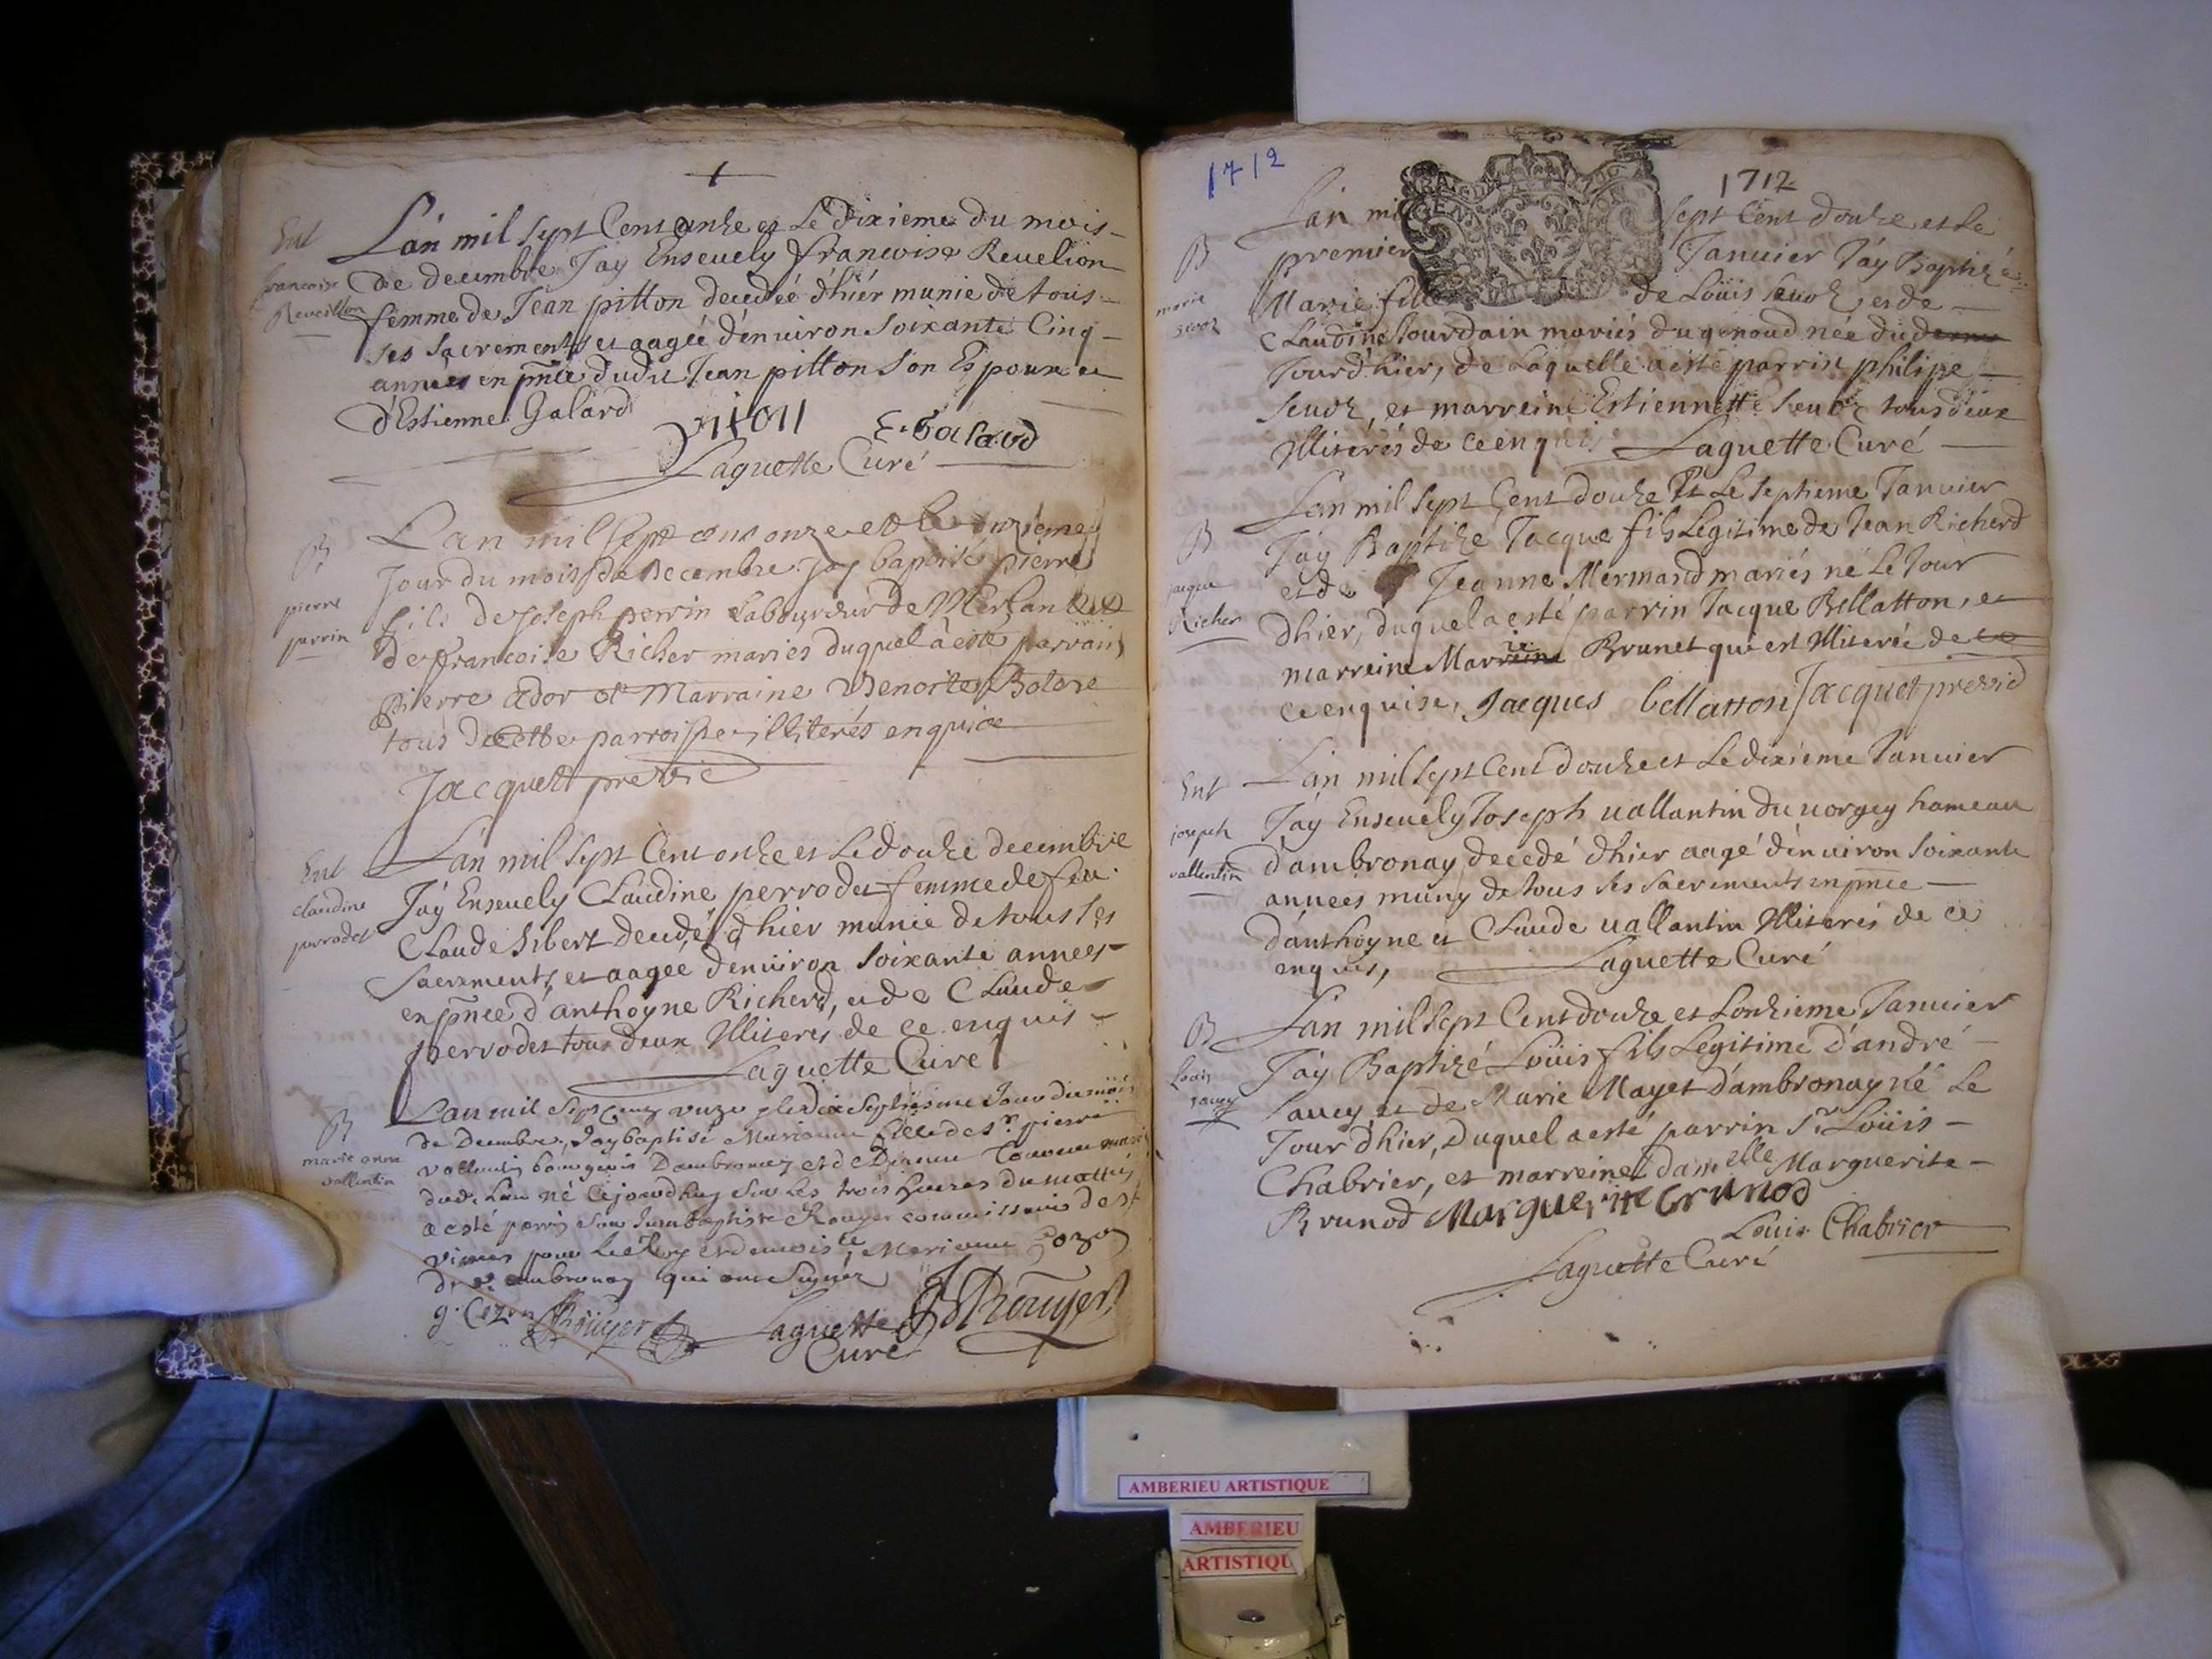 Ent
francoise
Reveillon
Lán mil sept Cent onhe et Le Dixieme du mois
de decembre Jay Enseuely francoise Reuelion
femme de Jean pitton decedéé d'hiér munie de tous
ses sacrements et aageé dénuiron soixante Cinq
années en pñce dudit Jean pitton son Espoux et
d'Estienne Galard
piton E. Galard
Laguette Curé
B
pierre
perrin
Lan mil sept cens onze et le onzieme
Jour du mois de decembre Jay baptisés pierre
fils de Joseph perrin Labourdeur de
de francoise Richer mariés duquel à esté parrain
pierre ador et Marraine Benoite Bolore
tous de cette parroisse illiterés enquise
Jacquet previc
Ent
claudine
perrodet
Lán mil sept Cent onhe et Le douhe decembre
Jáy Enseuely Claudine perrodet femme de feu
Claude Sibert decedéé d'hier munie de tous ses
Sacrements, et aageé denuiron soixante années
en pñce d'anthoyne Richerd, et de Claude
perrodet tous deux Illiterés de ce enquis
Laguette Curé
B
marie anne
vallentin
Lan mil sept cens onze et le dix septiesme Jour du mois
de Decembre, Jay baptisé Marianne fille de Sr. pierre
vallentin bourgeois Dambronay et de
dud. Lieu né cejourdhuy sur Les trois heures du mattin
a esté parrin Sieur Jean baptiste Rouyer commissaire des
vivres pour Le Roy et demoiselle Marianne Cozon
dud. ambronay qui ont Signéz
g. Cozon Rouyer Laguette JB Rouyer
Curé
1712
1712
B
marie
sevoz
Lan mil sept Cent douhe et Le
premier Januier Jáy Baptizé
Marie fille de Loüis seuoz et de
Claudine Jourdain mariés du genoud née du
Jour d'hier, de Laquelle a esté parrin philipe
Seuoz, et marreine Estiennette Seuoz tous deux
Illiterés de ce enquis Laguette Curé
B
jaque
Richer
Lan mil sept Cent douhe Et Le septieme Januier
Jáy Baptizé Jacque fils Legitime de Jean Richerd
et de Jeanne Mermand mariés né Le Jour
dhier, duquel a esté parrin Jacque Bellatton, et
marreine Marie Brunet qui est Illiterée de ce
ce enquise, Jacques bellatton Jacquet previc
Ent
joseph
vallentin
Lán mil sept Cent douhe et Le dixieme Januier
Jáy Enseuely Joseph uallantin du uorgey hameau
dámbronay decedé d'hier aagé dénuiron soixante
années muny de tous ses sacrements en pñce
dánthoyne et Claude uallantin Illiterés de ce
enquis, Laguette Curé
B
Louis
Lan mil sept Cent douhe et Lonhieme Januier
Jáy Baptizé Loüis fils Legitime d'andré
et de Marie Mayet d'ambronay né Le
Jour dhier, duquel a esté parrin Sr. Loüis
Chabrier, et marreine damelle Marguerite
Brunod Marguerite Brunod
Louis Chabrier
Laguette Curé
AMBERIEU ARTISTIQUE
AMBERIEU
ARTISTIQU